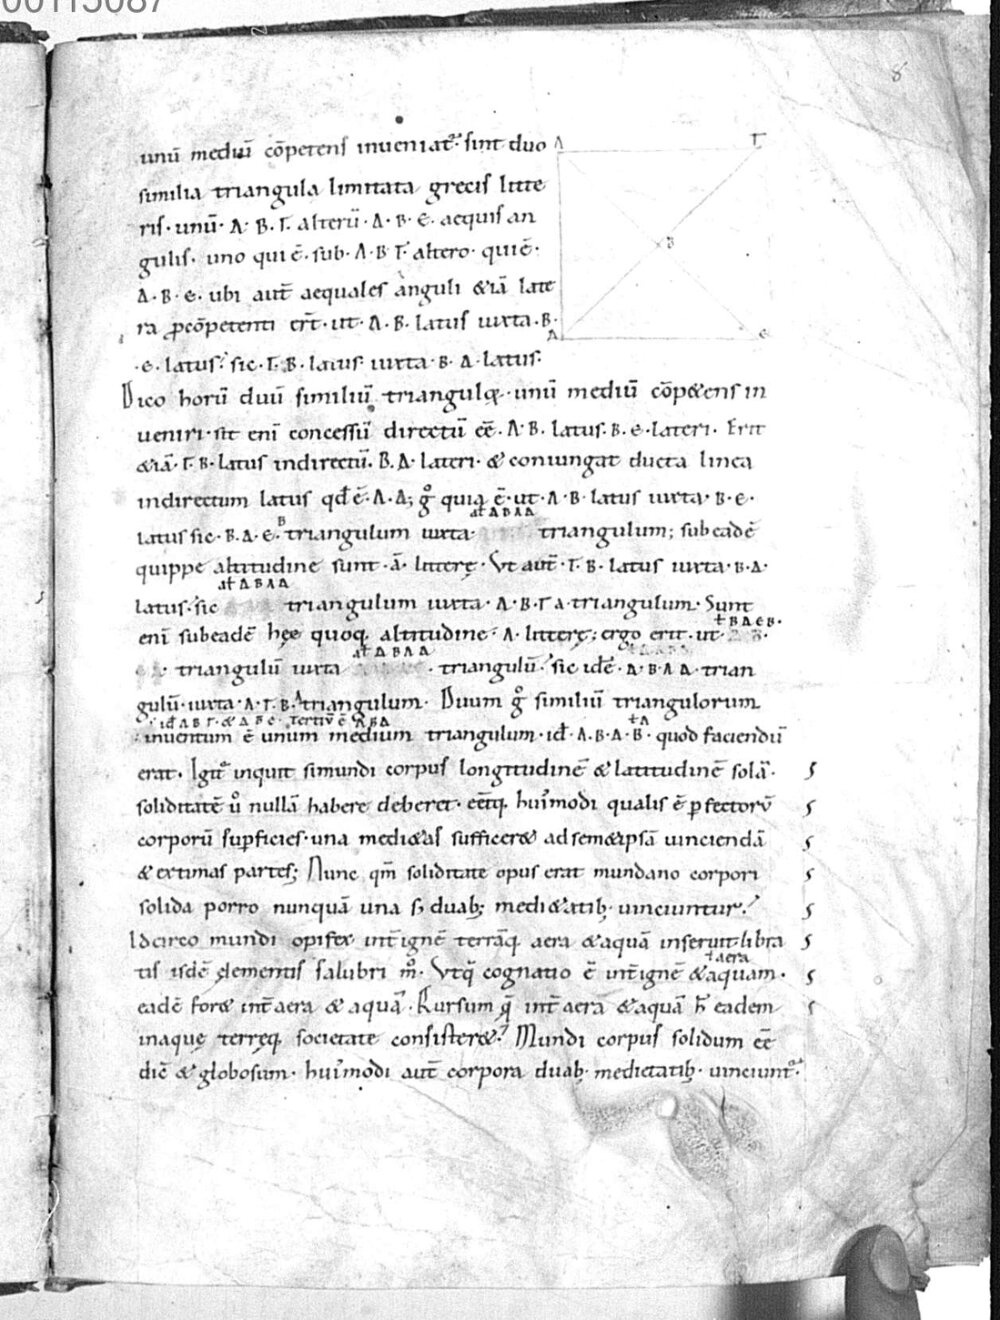 00115087
8
unū mediū cōpetens inueniat᷑· sint duo
similia triangula limitata grecis litte
ris· unū· Λ· B· Γ· alterū· Δ· B· E· aequis an
gulis· uno qui ē· sub· Λ· B· Γ· altero· qui ē·
Δ· B· E· ubi aut̄ aequales anguli &iā late
ra ꝓcōpetenti er̄t· ut· Λ· B· latus iuxta· B·
·E· latus· sic· Γ· B· latus iuxta· B· Δ· latus·
Dico horū duū similiū trianguloꝝ· unū mediū cōp&ens in
ueniri· sit eni concessū directū ēē· Λ· B· latus· B· E· lateri· Erit
&iā· Γ· B· latus indirectū· B· Δ· lateri· & coniungat ducta linea
indirectum latus qd̄ ē· Λ· Δ; g̊ quia ē· ut· Λ· B· latus iuxta· B· E·
ał Δ B Λ Δ
latus sic· B· Δ· E· triangulum iuxta· triangulum; subeadē
quippe altitudine sunt· Δ· litterę· Ut aut̄· Γ· B· latus iuxta· B· Δ·
ał Δ B Λ Δ
latus· sic triangulum iuxta· Λ· B· Γ Δ· triangulum· Sunt
eni subeadē hęe quoq, altitudine· Λ· litterę; ergo erit· ut·
ał Δ B Λ Δ
triangulū iuxta · triangulū· sic idē· Δ· B· Λ Δ· trian
gulū· iuxta· Λ· Γ· B· triangulum· Duum g̊ similiū triangulorum
· id Λ B Γ· & Δ B E· tertiū ē Λ B Δ
inuentum ē unum medium triangulum· id· Λ· B· Δ· B· quod faciendū
erat· Igit᷑ inquit simundi corpus longitudinē & latitudinē solā·
soliditatē u̇ nullā habere deberet· eētq, hui᷒modi qualis ē ꝑfectorū
corporū suꝑficies· una medi&as suffecer& adsem&ipsā uinciendā
& extimas partes; Nunc qm̄ soliditate opus erat mundano corpori
solida porro nunquā una s; duab; medi&atib; uinciuntur·
Idcirco mundi opifex int̄ ignē terrāq, aera & aquā inseruit· libra
ł aera
tis isdē elementis salubri m̊· Utq̄ cognatio ē int̄ ignē & aquam·
eadē for& int̄ aera & aquā· Rursum q̄ int̄ aera & aquā h̄ eadem
inaque terręq, societate consister&· Mundi corpus solidum ēē
dic̄ & globosum· hui᷒modi aut̄ corpora duab; medietatib; uinciunt᷑·
Λ
Γ
B
Δ
E